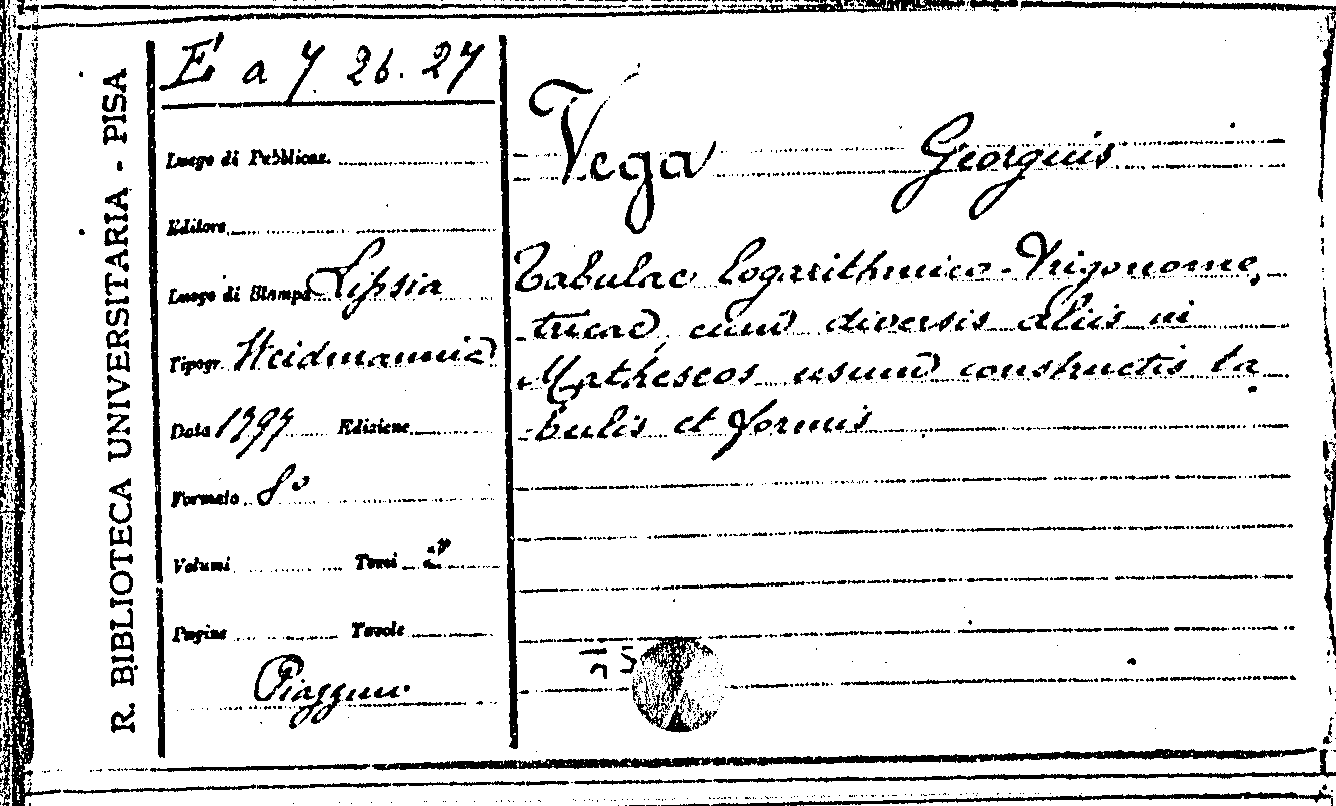 R. BIBLIOTECA UNIVERSITARIA - PISA
E a 7 26. 27
Luogo di Pubblicaz.
Editore
Luogo di Stampa Lipsia
Tipogr. Weidmannia
Data 1797 Edizione
Formato 8°
Volumi Tomi 2
Pagine Tavole
Vega Georguis
Tabulae logarithmico-Trigonome
tricae cum diversis aliis in
Matheseos usum constructis ta
bulis et formis